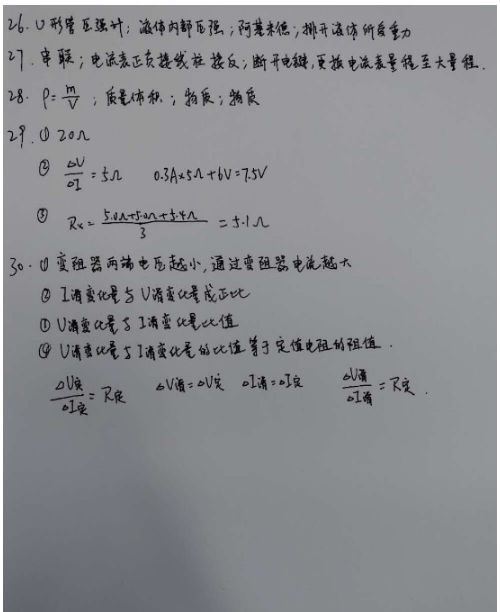 26. U形管压强计；液体内部压强；阿基米德；排开液体所受重力
27. 串联；电流表正负接线柱接反；断开电键，更换电流表量程至大量程.
28. ρ=m/V；质量体积；物质；物质
29. ① 20Ω
② ΔU/ΔI=5Ω 0.3A×5Ω+6V=7.5V
③ Rx=(5.0Ω+5.0Ω+5.4Ω)/3=5.1Ω
30. ① 变阻器两端电压越小，通过变阻器电流越大
② I滑变化量与U滑变化量成正比
① U滑变化量与I滑变化量比值
④ U滑变化量与I滑变化量的比值等于定值电阻的阻值.
ΔU定/ΔI定=R定 ΔU滑=ΔU定 ΔI滑=ΔI定 ΔU滑/ΔI滑=R定.